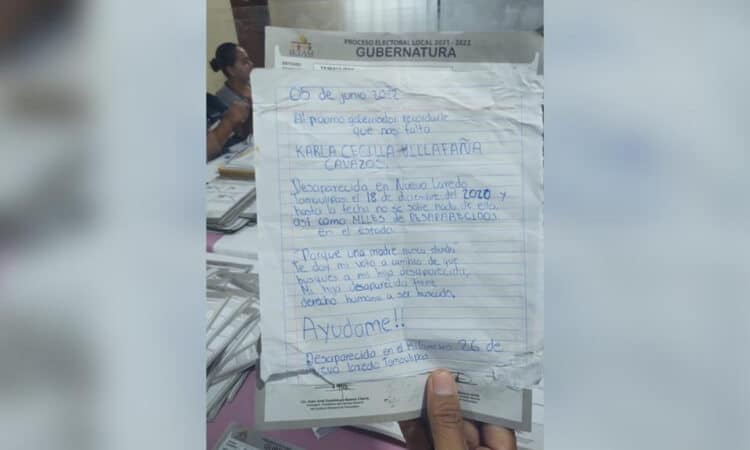 IETAM
PROCESO ELECTORAL LOCAL 2021 - 2022
GUBERNATURA
05 de junio 2022
Al proximo gobernador recordarle
que nos falta
KARLA CECILIA VILLAFAÑA
CAVAZOS.
Desaparecida en Nuevo Laredo
Tamaulipas el 18 de diciembre del 2020 y
hasta la fecha no se sabe nada de ella
así como MILES de DESAPARECIDOS
en el Estado.
"Porque una madre nunca olvida"
Te doy mi voto a cambio de que
busques a mi hija desaparecida,
Mi hija desaparecida tiene
derecho humano a ser buscada.
Ayudame!!
Desaparecida en el Kilometro 26 de
Nuevo Laredo Tamaulipas
GUBERNATURA